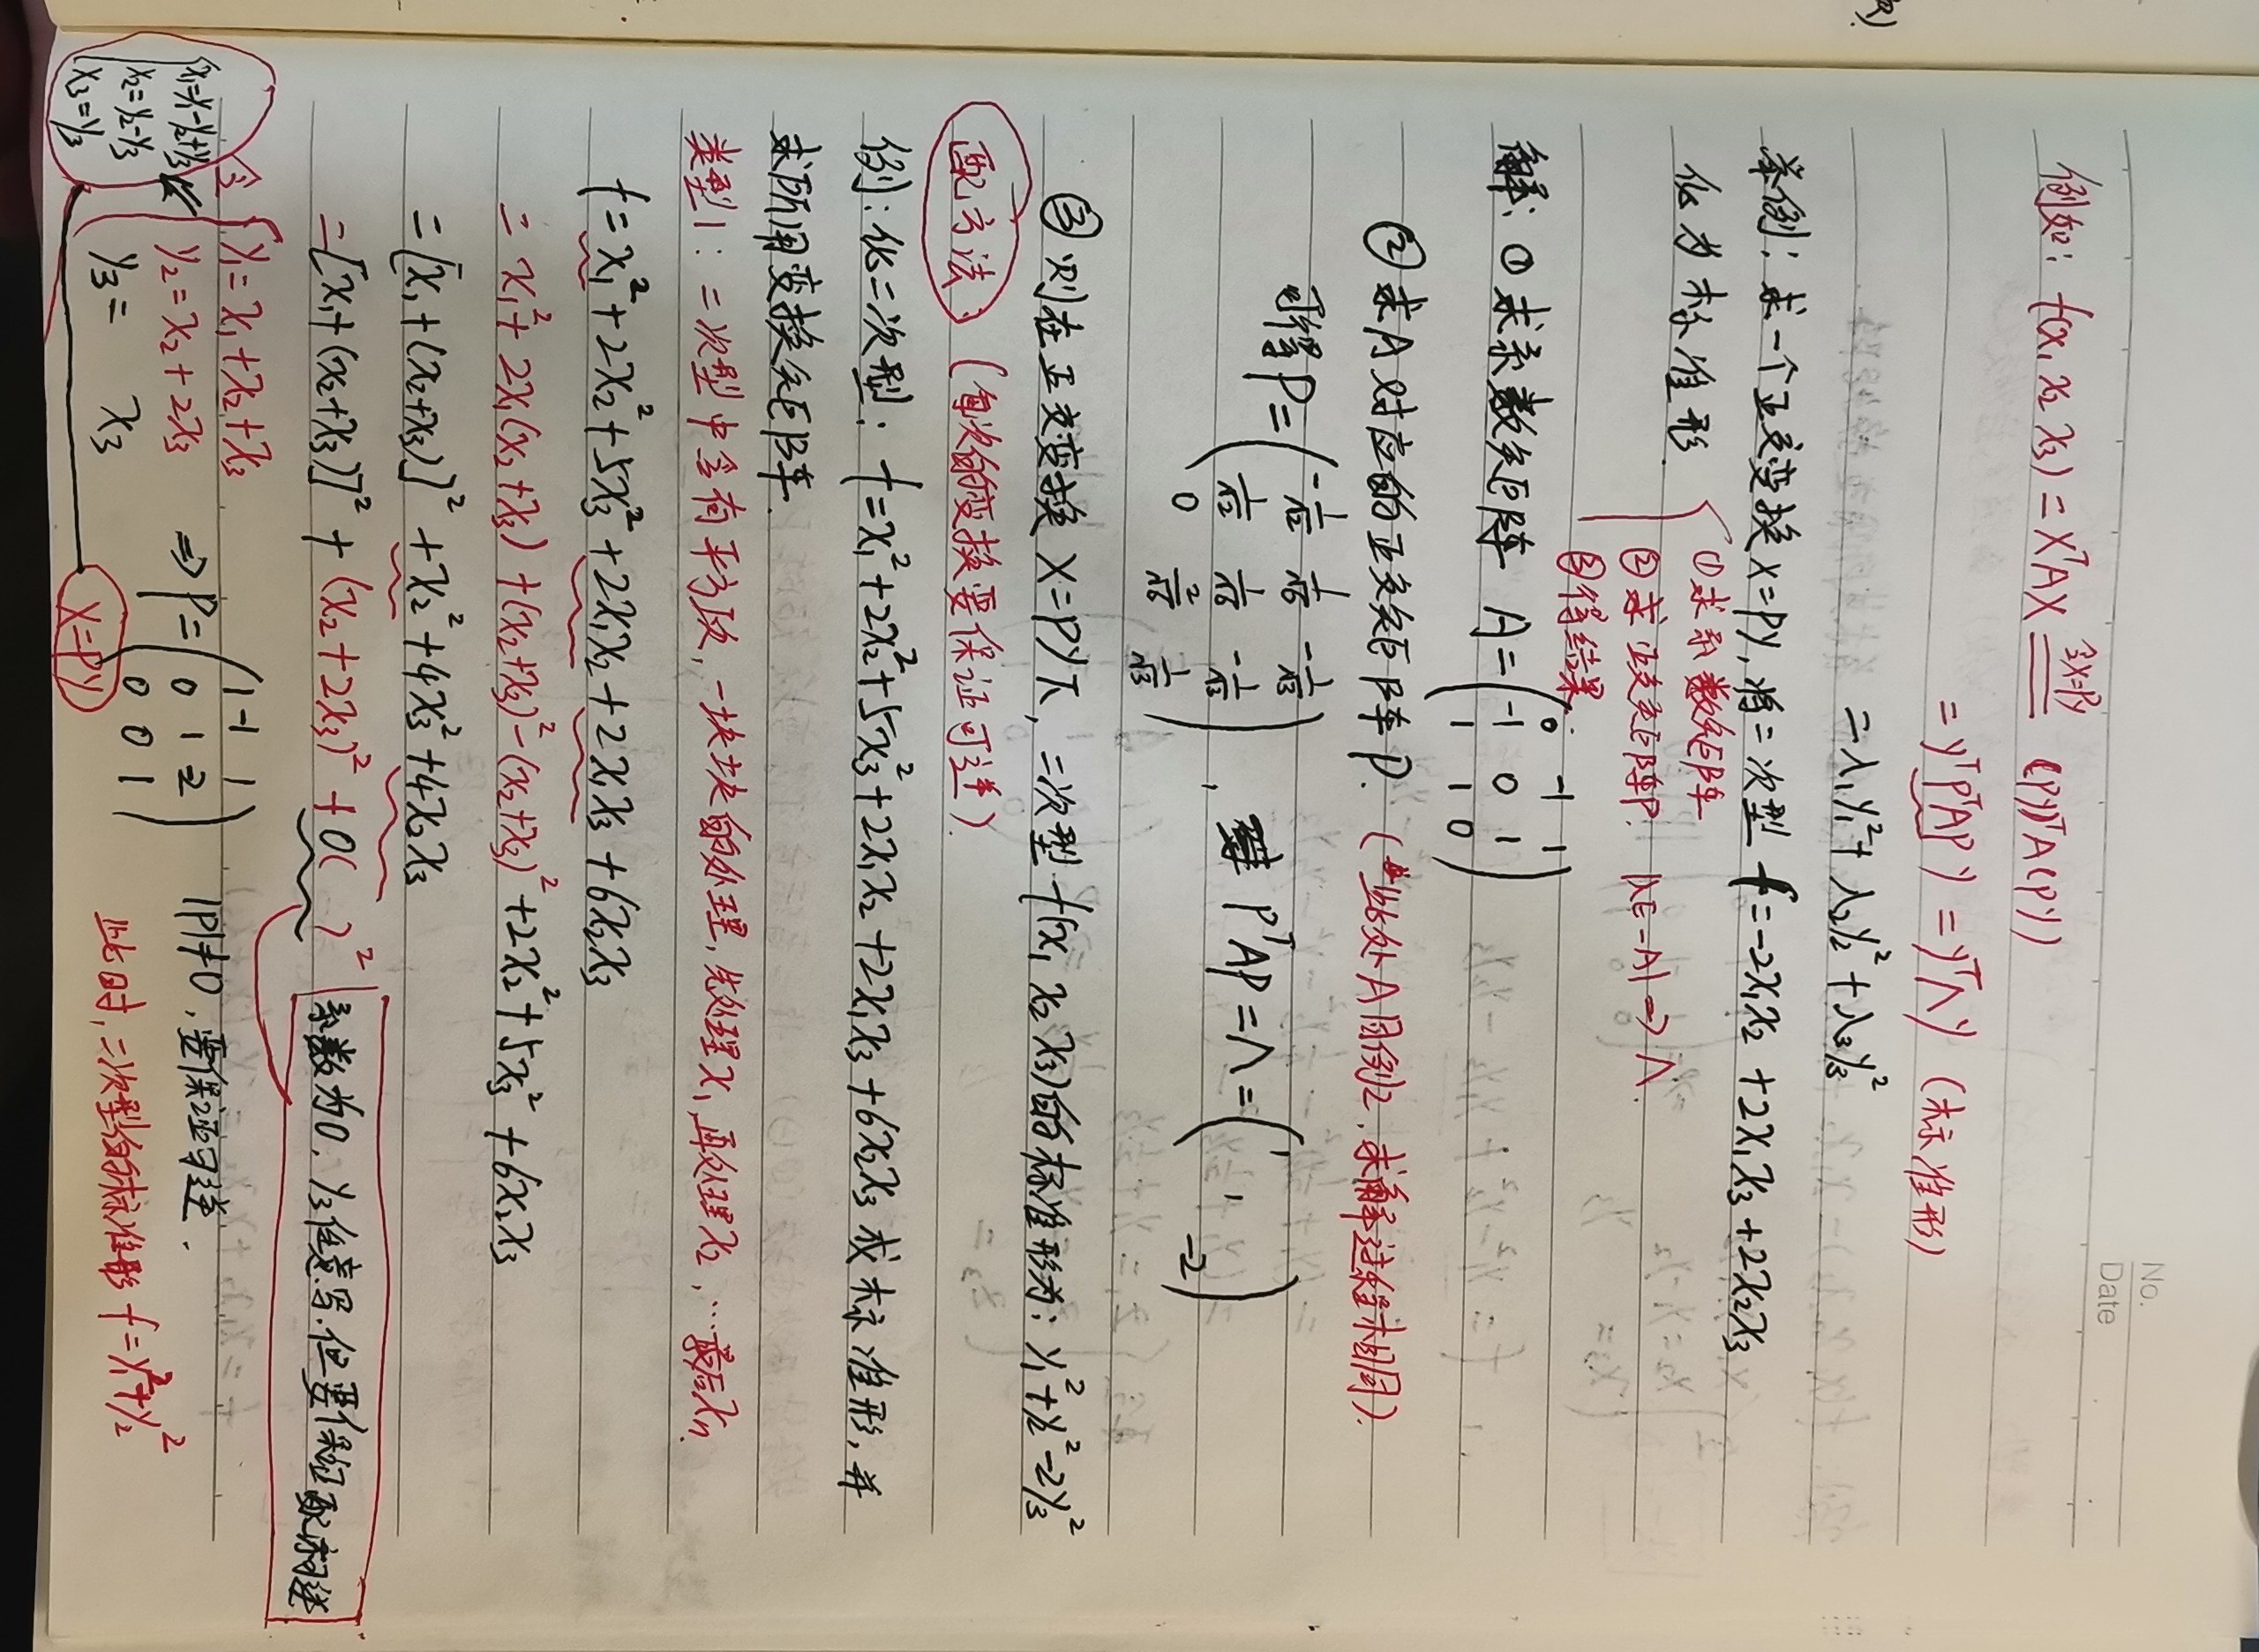 No.
Date
例如: f(x₁ x₂ x₃) = XᵀAX ═(令X=Py)═ (Py)ᵀA(Py)
= yᵀPᵀAPy = yᵀΛy (标准形)
= λ₁y₁² + λ₂y₂² + λ₃y₃²
举例: 求一个正交变换X=Py, 将二次型 f=-2x₁x₂+2x₁x₃+2x₂x₃
化为标准形.
①求系数矩阵
②求正交矩阵P. |λE-A| ⇒ Λ.
③得结果.
解: ①求系数矩阵 A = (0 -1 1; -1 0 1; 1 1 0)
②求A对应的正交矩阵P. (此处A同例2, 求解过程相同).
可得P = (-1/√2 1/√6 -1/√3; 1/√2 1/√6 -1/√3; 0 2/√6 1/√3), PᵀAP = Λ = (1; 1; -2)
③则在正交变换 X=Py下, 二次型 f(x₁ x₂ x₃)的标准形为: y₁²+y₂²-2y₃²
配方法 (每次的变换要保证可逆).
例: 化二次型: f=x₁²+2x₂²+5x₃²+2x₁x₂+2x₁x₃+6x₂x₃ 成标准形, 并
求所用变换矩阵.
类型1: 二次型中含有平方项, 一块块的处理, 先处理x₁, 再处理x₂, …最后xₙ.
f = x₁²+2x₂²+5x₃²+2x₁x₂+2x₁x₃+6x₂x₃
= x₁²+2x₁(x₂+x₃)+(x₂+x₃)²-(x₂+x₃)²+2x₂²+5x₃²+6x₂x₃
= [x₁+(x₂+x₃)]²+x₂²+4x₃²+4x₂x₃
= [x₁+(x₂+x₃)]²+(x₂+2x₃)²+0( )²
系数为0, y₃任意写.但要保证可逆
令 {y₁=x₁+x₂+x₃
y₂=x₂+2x₃
y₃= x₃
⇒ P = (1 -1 1; 0 1 2; 0 0 1) |P|≠0, 要保证可逆.
此时, 二次型的标准形 f=y₁²+y₂²
{x₁=y₁-y₂+y₃
x₂=y₂-y₃
x₃=y₃
X=Py